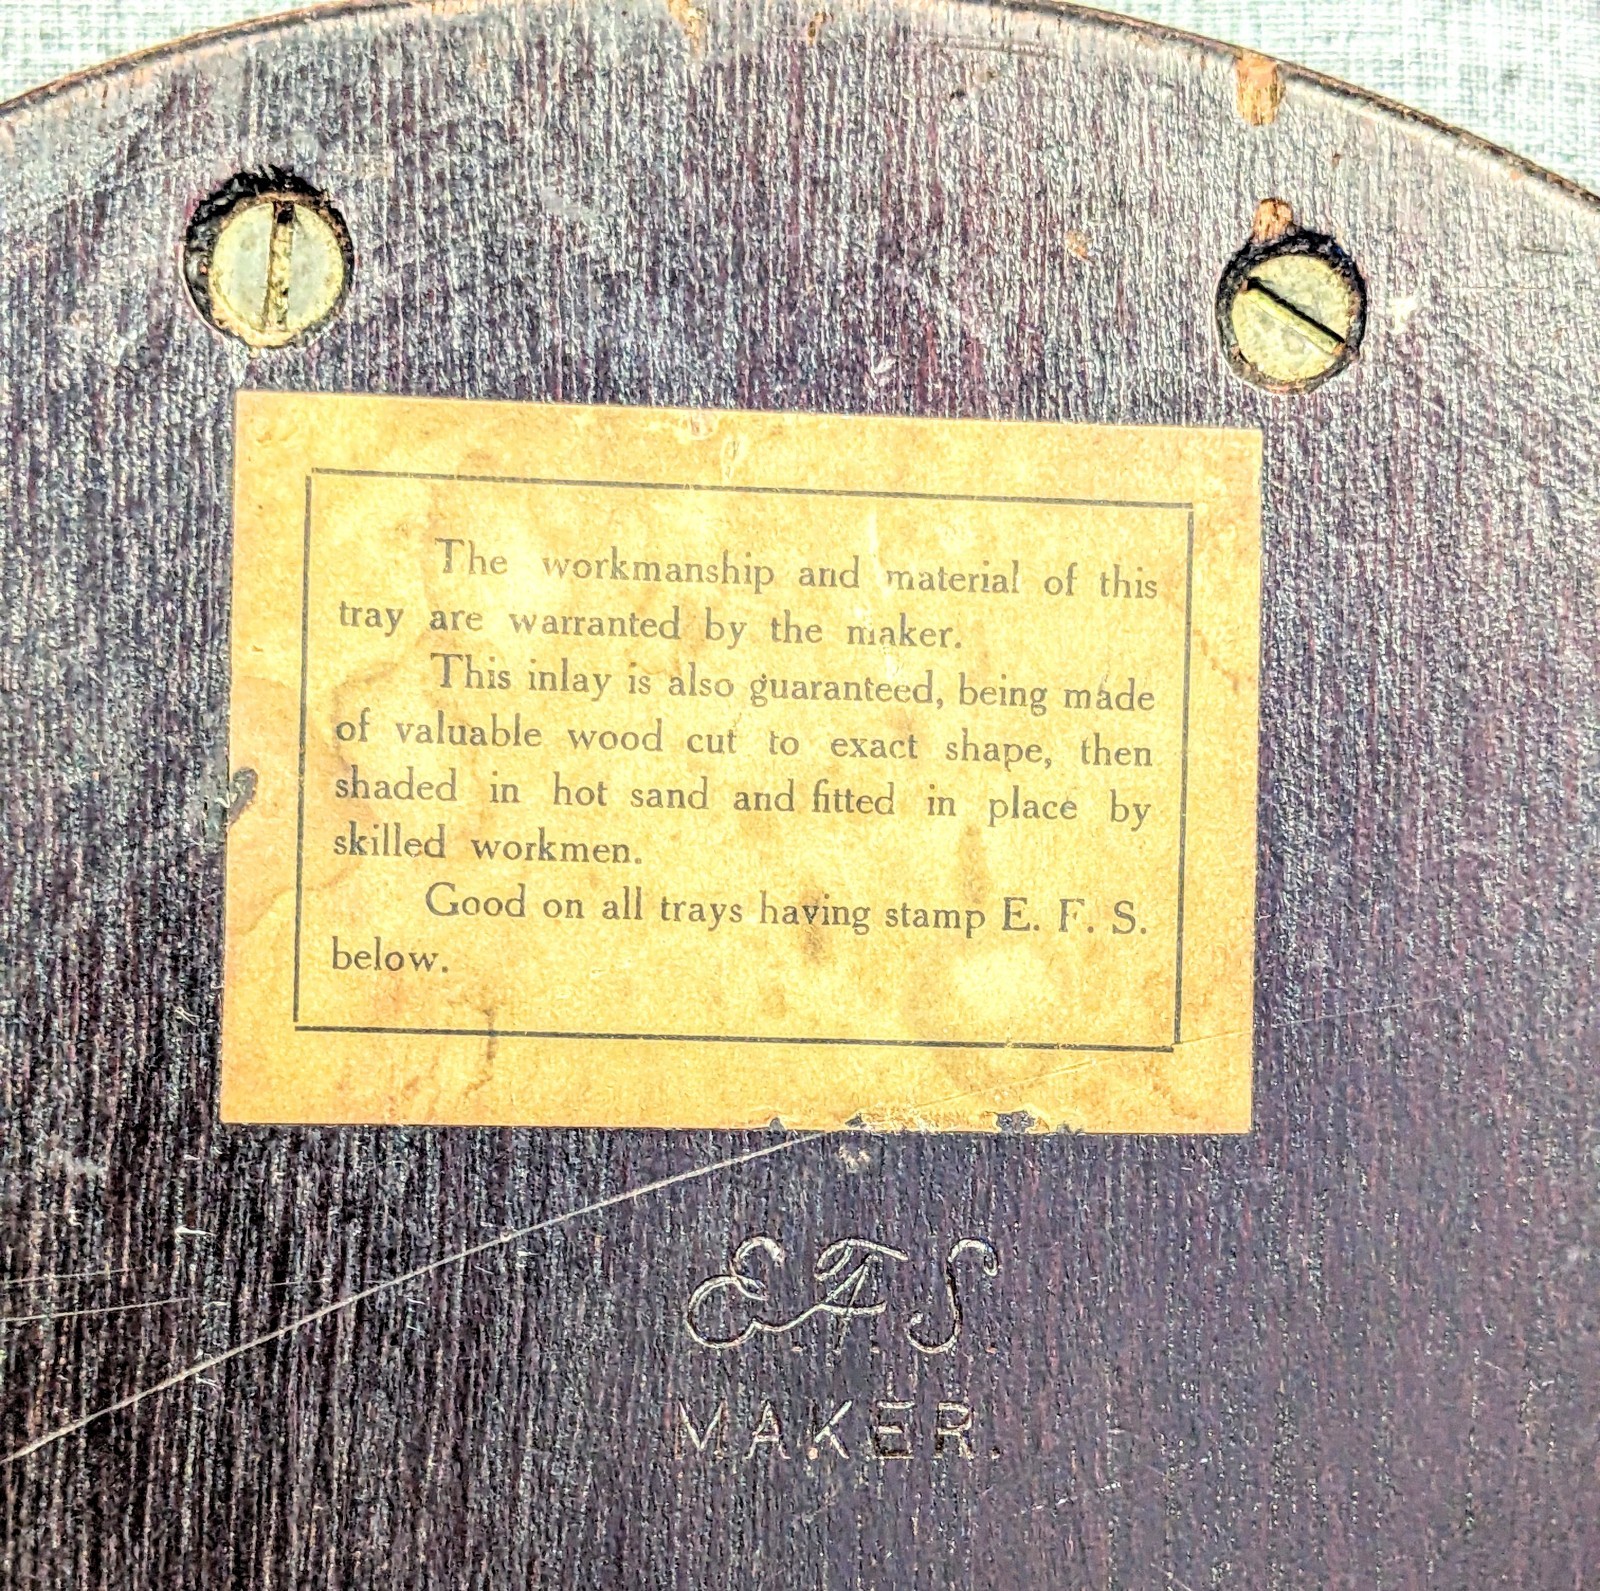 The workmanship and material of this
tray are warranted by the maker.
This inlay is also guaranteed, being made
of valuable wood cut to exact shape, then
shaded in hot sand and fitted in place by
skilled workmen.
Good on all trays having stamp E. F. S.
below.
E.F.S.
MAKER.